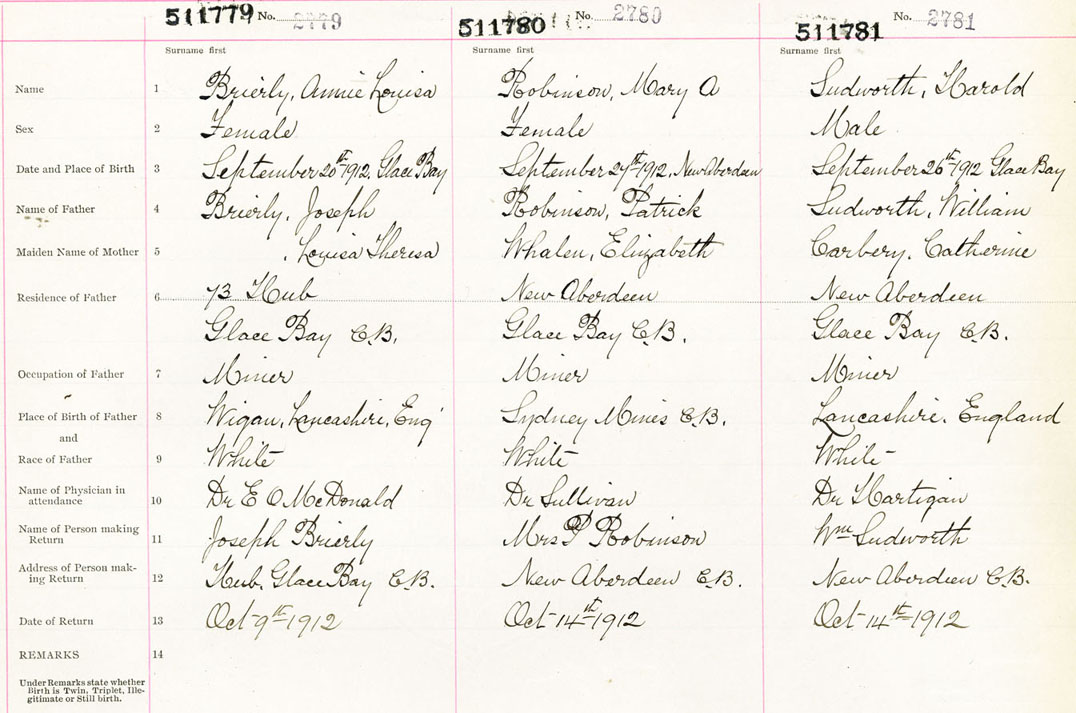 511779 No. 2779 511780 No. 2780 511781 No. 2781
Surname first Surname first Surname first
Name 1 Brierly, Annie Louisa Robinson, Mary A Sudworth, Harold
Sex 2 Female Female Male
Date and Place of Birth 3 September 20th 1912, Glace Bay September 29th 1912, New Aberdeen September 26th 1912 Glace Bay
Name of Father 4 Brierly, Joseph Robinson, Patrick Sudworth, William
Maiden Name of Mother 5 , Louisa Theresa Whalen, Elizabeth Carbery, Catherine
Residence of Father 6 73 Hub New Aberdeen New Aberdeen
Glace Bay C.B. Glace Bay C.B. Glace Bay C.B.
Occupation of Father 7 Miner Miner Miner
Place of Birth of Father 8 Wigan, Lancashire, Eng' Sydney Mines C.B. Lancashire. England
and
Race of Father 9 White White White
Name of Physician in
attendance 10 Dr E O McDonald Dr Sullivan Dr Hartigan
Name of Person making
Return 11 Joseph Brierly Mrs P Robinson Wm Sudworth
Address of Person mak-
ing Return 12 Hub, Glace Bay C.B. New Aberdeen C.B. New Aberdeen C.B.
Date of Return 13 Oct 9th 1912 Oct 14th 1912 Oct 14th 1912
REMARKS 14
Under Remarks state whether
Birth is Twin, Triplet, Ille-
gitimate or Still birth.